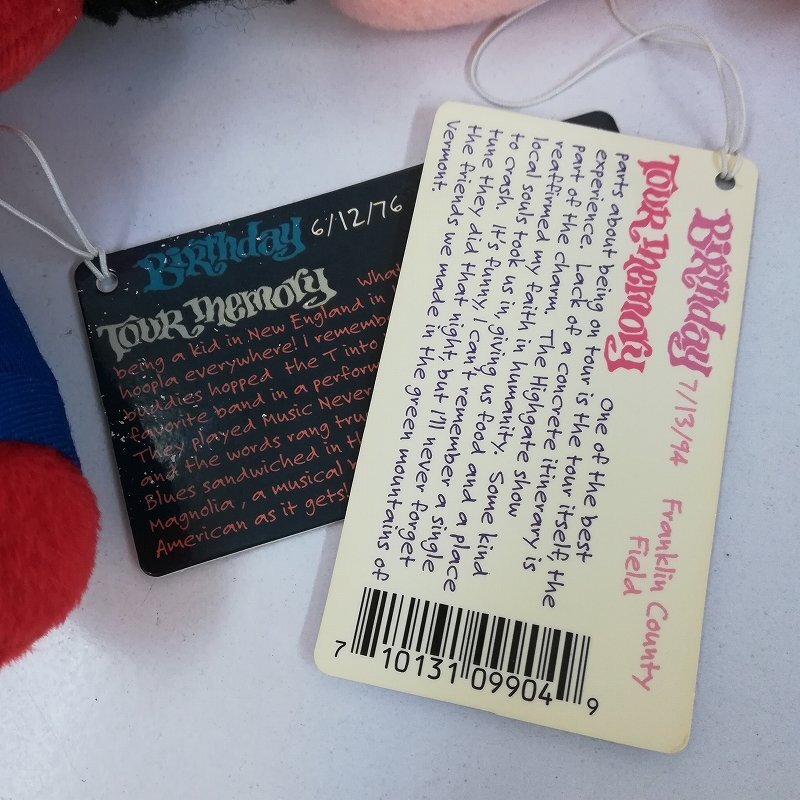 Birthday 6/12/76
Tour Memory
being a kid in New England in
hoopla everywhere! I
buddies hopped the T into
favorite band in a
They played Music
and the words rang
Blues sandwiched in
Magnolia, a musical
American as it gets!
Birthday 7/13/94 Franklin County
Field
Tour Memory One of the best
parts about being on tour is the tour itself, the
experience. Lack of a concrete itinerary is
part of the charm. The Highgate show
reaffirmed my faith in humanity. Some kind
local souls took us in, giving us food and a place
to crash. It's funny, I can't remember a single
tune they did that night, but I'll never forget
the friends we made in the green mountains of
Vermont.
7 10131 09904 9